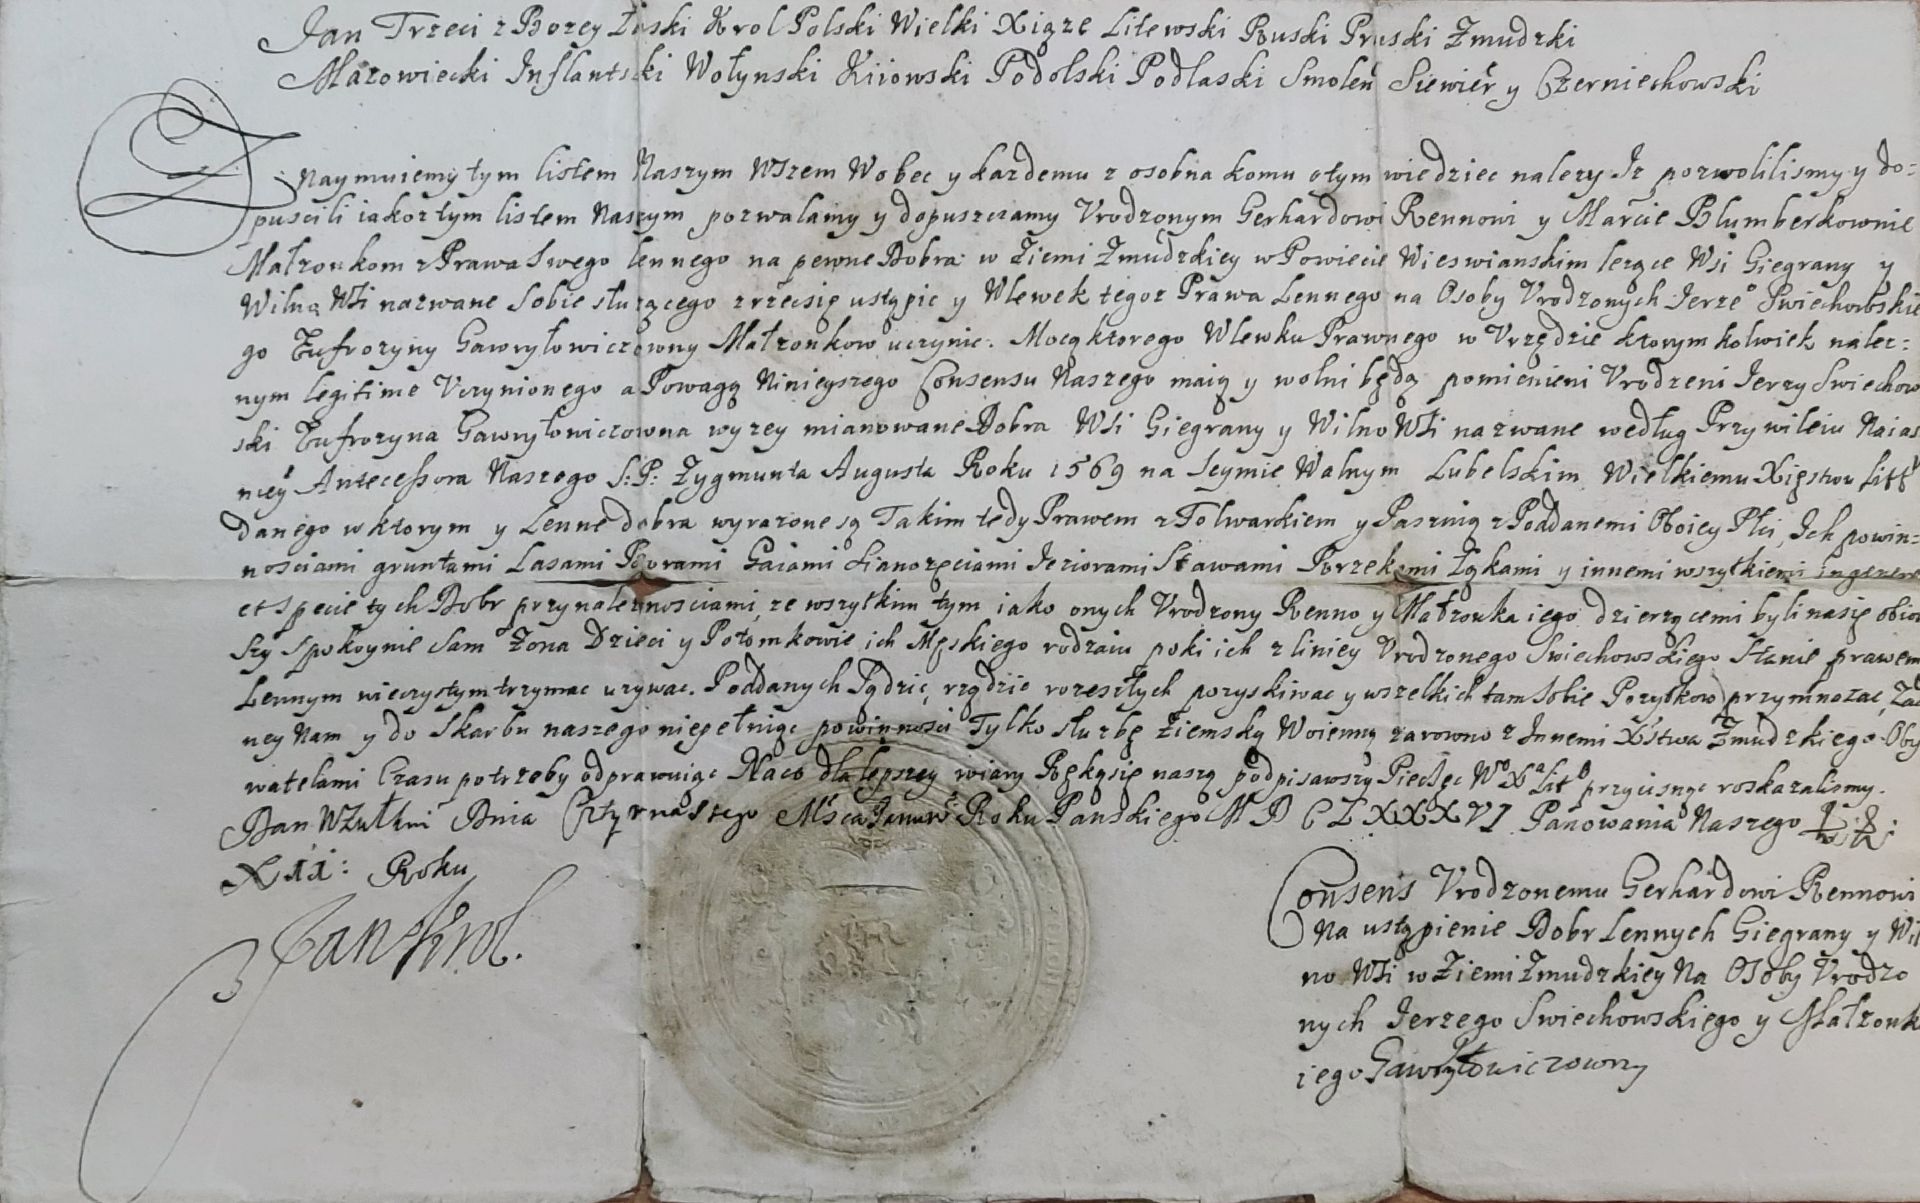 Jan Trzeci z Bozey Łaski Krol Polski Wielki Xiąze Litewski Ruski Pruski Zmudzki
Mazowiecki Inflantski Wołynski Kiiowski Podolski Podlaski Smolen Siewier y Czerniechowski
Znaymuiemy tym listem Naszym Wszem Wobec y kazdemu z osobna komu otym wiedziec nalezy Iz pozwolilismy y do=
puscili iakoz tym listem Naszym pozwalamy y dopuszczamy Vrodzonym Gerhardowi Rennowi y Marcie Blumberkownie
Małzonkom z Prawa Swego lennego na pewne Dobra w Ziemi Zmudzkiey w Powiecie Wieswianskim lezące Wsi Giegrany y
Wilną Wsi nazwane Sobie słuzącego zrzecsię ustąpic y Wlewek tegoz Prawa Lennego na Osoby Vrodzonych Ierze° Swiechowskie
go Eufrozyny Gawryłowiczowny Małzonkow uczynic. Mocą ktorego Wlewku Prawnego w Vrzędzie ktorym kolwiek nalez=
nym legitime Vczynionego a Powagą Ninieyszego Consensu Naszego maią y wolni będą pomienieni Vrodzeni Ierzy Swiechow
ski Eufrozyna Gawryłowiczowna wyzey mianowane Dobra Wsi Giegrany y Wilno Wsi nazwane według Przywileiu Naias
niey Antecessora Naszego S: P: Zygmunta Augusta Roku 1569 na Seymie Walnym Lubelskim Wielkiemu Xięstwu Litt
danego w ktorym y Lenne dobra wyrazone są Takim tedy Prawem z Folwarkiem y Pasznią z Poddanemi Oboiey Płci, Ich powin=
nosciami gruntami Lasami Borami Gaiami Sianozęciami Ieziorami Stawami Porzekami Łąkami y innemi wszytkiemi in genere
et Specie tych Dobr przynaleznosciami, ze wszytkim tym iako onych Vrodzony Renno y Małzonka iego dzierzącemi byli nasię obiow
szy Spokoynie Sam Zona Dzieci y Potomkowie ich Męskiego rodzaiu poki ich z liniey Vrodzonego Swiechowskiego Stanie prawem
Lennym wieczystym trzymac uzywac. Poddanych Sądzic, rządzic rozeszłych pozyskiwac y wszelkich tam Sobie Pozytkow przymnozac, Zad
ney Nam y do Skarbu naszego niepełniąc powinnosci Tylko słuzbę Ziemską Woienną zarowno z Innemi X°stwa Zmudzkiego Oby
watelami Czasu potrzeby odprawuiąc Naco dla lepszey wiary Rękąsię naszą podpisawszy Pieczęc W° X^a Lit° przycisnąc roskazalismy.
Dan W Zułkwi Dnia Czternastego Msca Ianuar Roku Panskiego M D C LXXXVI Panowania Naszego
XII: Roku
Jan Krol.
Consens Vrodzonemu Gerhardowi Rennowi
Na ustąpienie Dobr Lennych Giegrany y Wil
no Wsi w Ziemi Zmudzkiey Na Osoby Vrodzo
nych Ierzego Swiechowskiego y Małzonk
iego Gawryłowiczowny